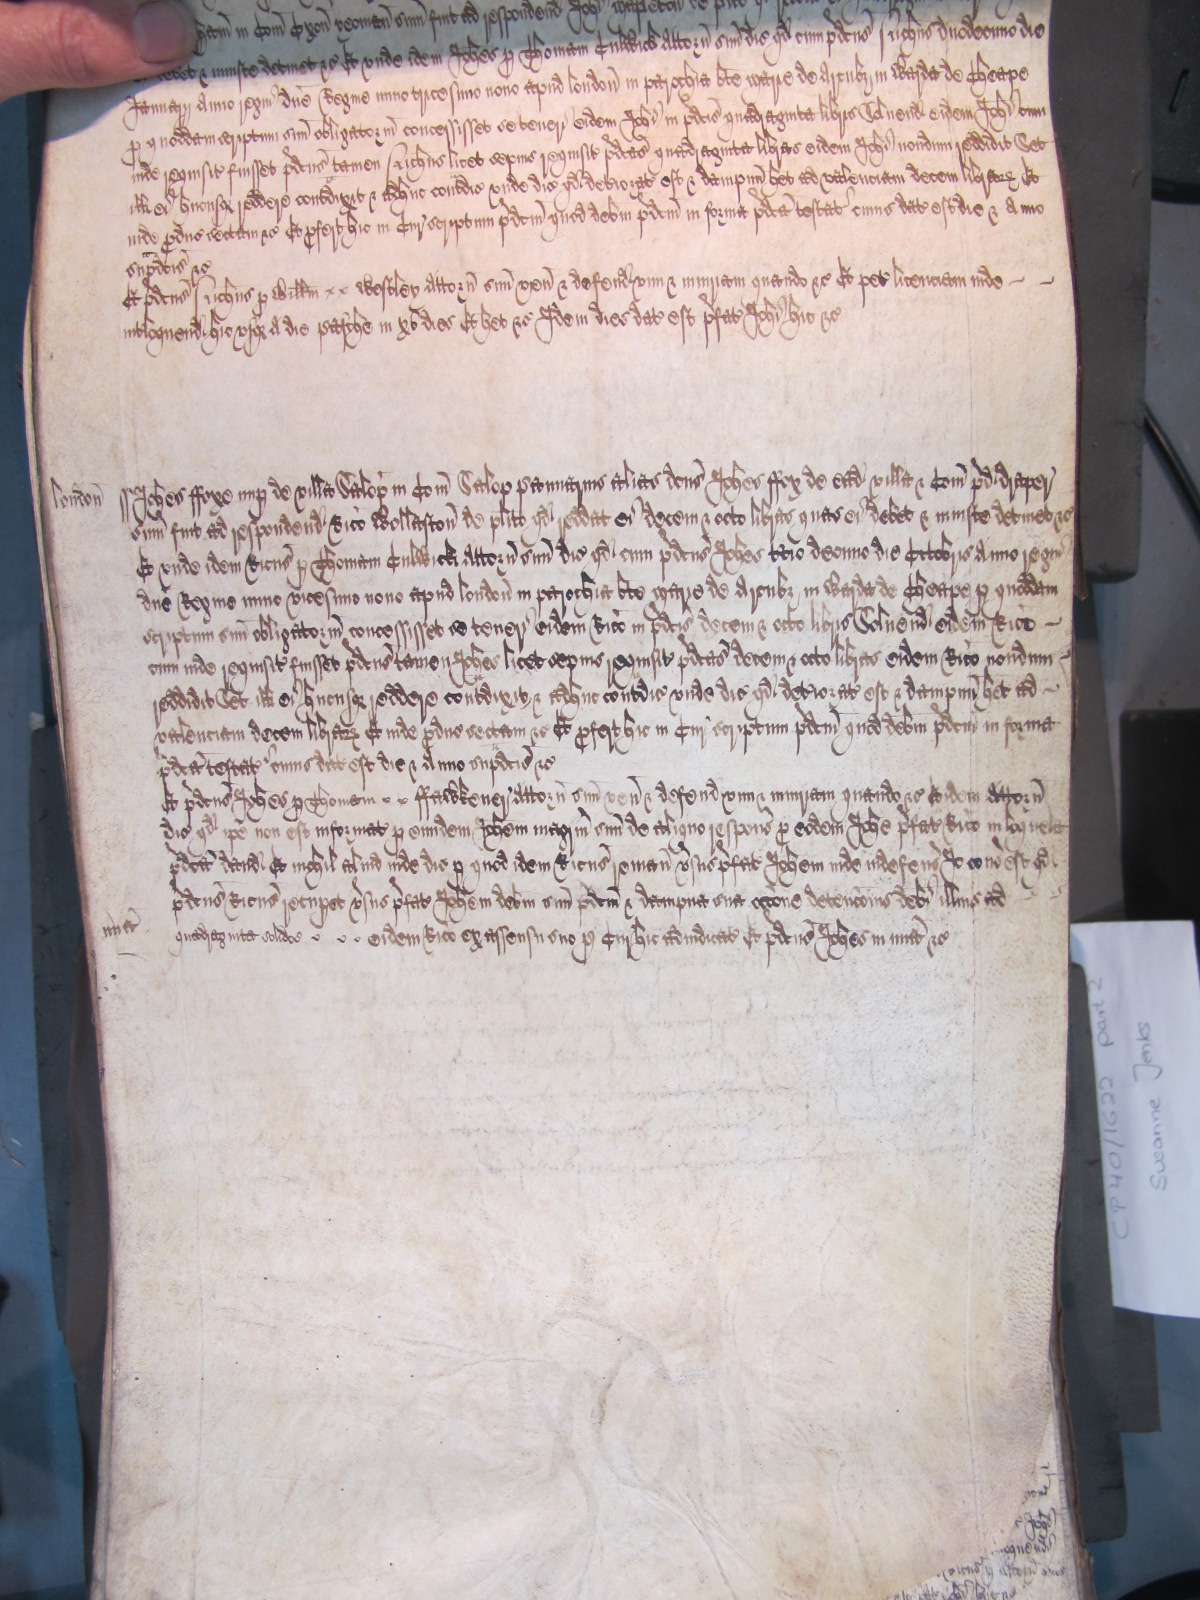 in Com̄ Exon̄ yeoman sum̄ fuit ad respondend Joh̄i
debet & iniuste detinet &c Et unde idem Joh̄es p Thomam Culwick Attorn̄ sum̄ dic qd cum p̄dcus Ric̄hus duodecimo die
Januarij Anno regni dn̄e Regine nunc tricesimo nono apud london̄ in parochia bt̄e marie de Arcubȝ in Warda de Cheape
p quoddam scriptum sum̄ obligatoriū concessisset se teneri eidem Joh̄i in p̄dcis quadraginta libris Solvend eidem Joh̄i cum
inde requisit fuisset p̄dcus tamen Ric̄hus licet sepius requisit p̄dcas quadraginta libras eidem Joh̄i nondum reddidit Set
ill ei hucusqȝ reddere contradixit & adhuc contradic unde dic qd deteriorat est & dampnū het ad valenciam decem librarȝ Et
inde pduc sectam &c Et pfert hic in Cur scriptum p̄dcm quod debm̄ p̄dcm in forma p̄dca testat cuius dat est die & Anno
sup̄dcis &c
Et p̄dcus Ric̄hus p Willm̄ Westley Attorn̄ sum̄ ven̄ & defend vim & iniuriam quando &c Et pet licenciam inde
int̄loquend hic usqȝ A die pasche in xv dies Et het &c Idem dies dat est p̄fat Joh̄i hic &c
london̄ ss Joh̄es ffoxe nup de villa Salop in Com̄ Salop pannarius alias dcus Joh̄es ffox de ead villa & Com̄ p̄d draper
sum̄ fuit ad respondend Ric̄o Wollaston̄ de plito qd reddat ei decem & octo libras quas ei debet & iniuste detinet &c
Et unde idem Ric̄us p Thomam Culwick Attorn̄ sum̄ dic qd cum p̄dcus Joh̄es tc̄io decimo die Octobris Anno regni
dn̄e Regine nunc vicesimo nono apud london̄ in parochia bt̄e marie de Arcubȝ in Warda de Cheape p quoddam
scriptum sum̄ obligatoriū concessisset se teneri eidem Ric̄o in p̄dcis decem & octo libris Solvend eidem Ric̄o
cum inde requisit fuisset p̄dcus tamen Joh̄es licet sepius requisit p̄dcas decem & octo libras eidem Ric̄o nondum
reddidit Set ill ei hucusqȝ reddere contradixit & adhuc contradic unde dic qd deteriorat est & dampnū het ad
valenciam decem librarȝ Et inde pduc sectam &c Et pfert hic in Cur scriptum p̄dcm quod debm̄ p̄dcm in forma
p̄dca testat cuius dat est die & Anno sup̄dcis &c
Et p̄dcus Joh̄es p Thomam ffawkener Attorn̄ sum̄ ven̄ & defend vim & iniuriam quando &c Et idem Attorn̄
dic qd ip̄e non est informat p eundem Joh̄em magr̄m sum̄ de aliquo respons p eodem Joh̄e p̄fat Ric̄o in loquela
p̄dca dand Et nichil aliud inde dic p quod idem Ric̄us remanet v̄sus p̄fat Joh̄em inde indefens Io cons est qd
p̄dcus Ric̄us recupet v̄sus p̄fat Joh̄em debm̄ sum̄ p̄dcm & dampna sua occ̄one detencionis debi illius ad
mia quadraginta solidos eidem Ric̄o ex assensu suo p Cur hic adiudicat Et p̄dcus Joh̄es in mia &c
CP40/1622 part 2
Susanne Jenks